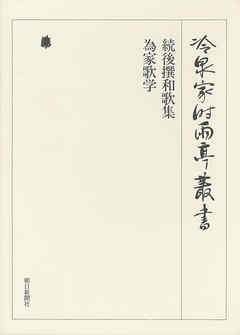 冷泉家時雨亭叢書
続後撰和歌集
為家歌学
朝日新聞社